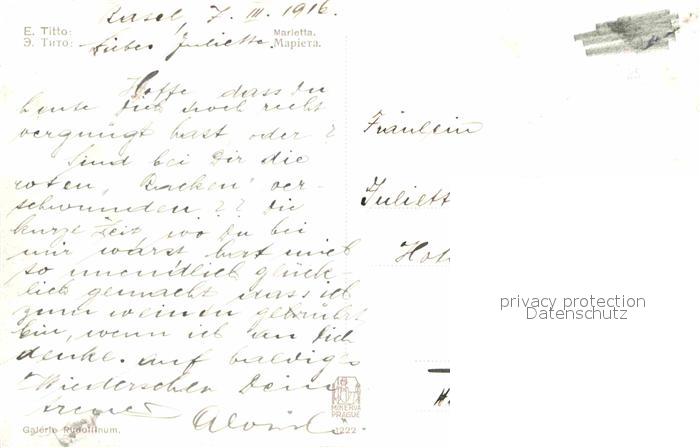 Basel, 7. III. 1916.
E. Titto:
Э. Тито:
Marietta.
Маріета.
Liebes Juliette.
Hoffe dass Du
heute Dich noch recht
vergnügt hast oder?
Sind bei Dir die
roten „Backen" ver-
schwunden?? Die
kurze Zeit, wo Du bei
mir warst hat mich
so unendlich glück-
lich gemacht dass ich
zum weinen gerührt
bin, wenn ich an Dich
denke. auf baldiges
Wiedersehen Dein
treuer
Galerie Rudolfinum.
MINERVA
PRAGUE
1222
Fräulein
Juliett
Hot
privacy protection
Datenschutz